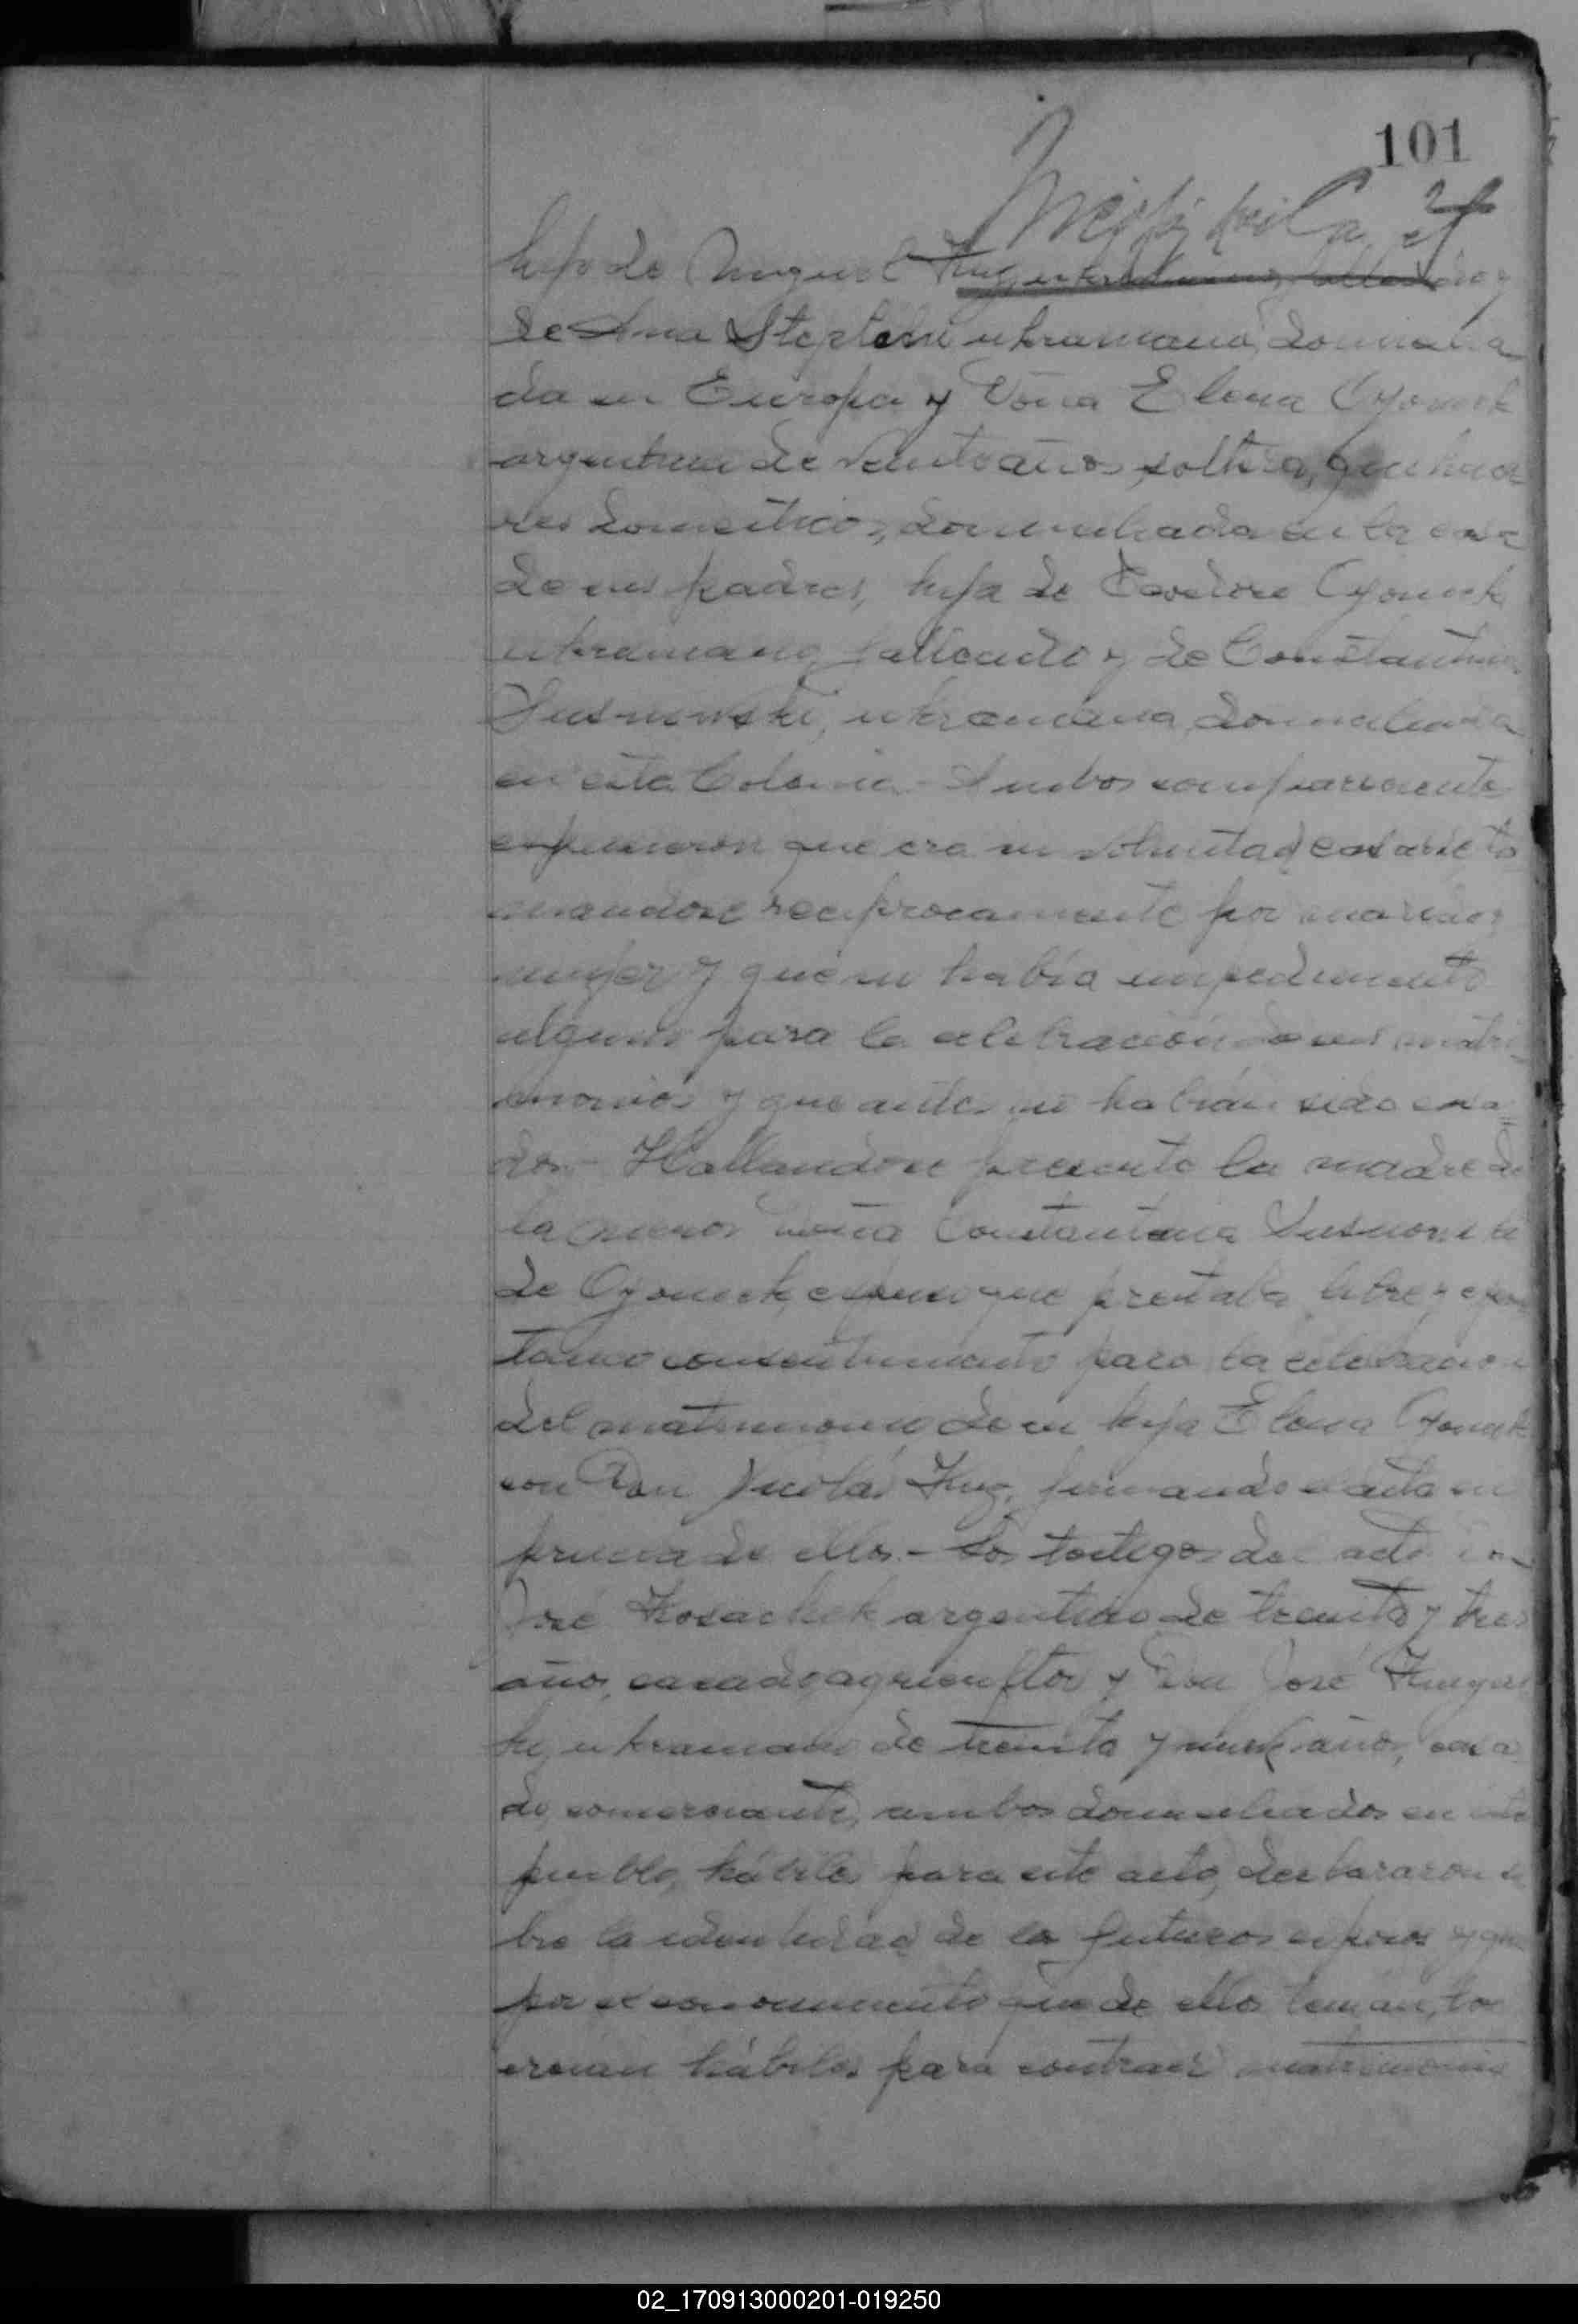 101
hijo de Miguel Kuz, ukraniano, fallecido y
de Ana Steptehn ukraniana, domicilia
da en Europa y Doña Elena Oyonek
argentina de veinte años, soltera, quehace
res domésticos, domiciliada en la casa
de sus padres, hija de Teodoro Oyonek
ukraniano, fallecido y de Constantina
ukraniana, domiciliada
en esta Colonia - Ambos comparecientes
expusieron que era su voluntad casarse, to
mandose reciprocamente por marido y
mujer y que no había impedimento
alguno para la celebración de su matri
monio y que antes no habían sido casa
dos - Hallandose presente la madre de
la menor Doña Constantina
de Oyonek, expuso que prestaba libre y espon
taneo consentimiento para la celebracion
del matrimonio de su hija Elena Oyonek
con Don Nicolás Kuz, firmando el acta en
prueba de ello. - Los testigos del acto Don
José Kosachek argentino de treinta y tres
años, casado, agricultor y Don José
ukraniano de treinta y nueve años, casa
do, comerciante, ambos domiciliados en este
pueblo, hábiles para este acto, declararon so
bre la identidad de los futuros esposos y que
por el conocimiento que de ellos tenian, los
creian hábiles para contraer matrimonio
02_170913000201-019250